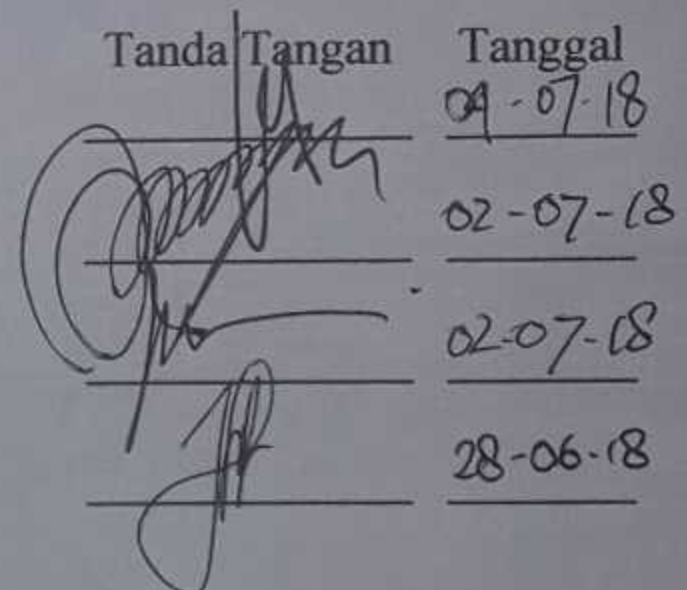 Tanda Tangan Tanggal
04-07-18
02-07-18
02-07-18
28-06-18